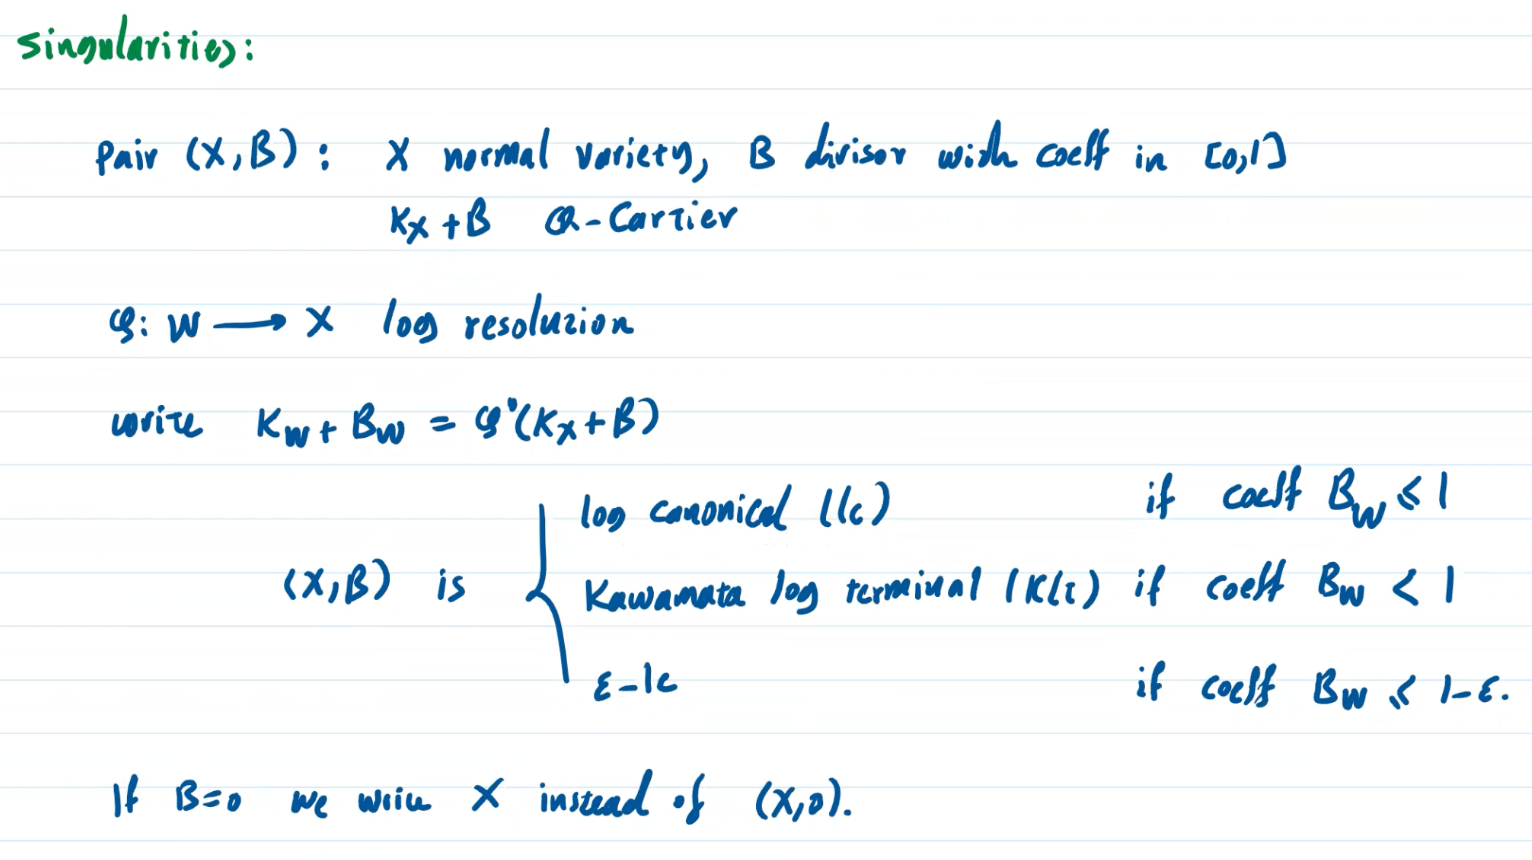 Singularities:
Pair (X,B): X normal variety, B divisor with coeff in [0,1]
K_X + B Q-Cartier
φ: W ⟶ X log resolution
write K_W + B_W = φ*(K_X + B)
log canonical (lc) if coeff B_W ≤ 1
(X,B) is { Kawamata log terminal (klt) if coeff B_W < 1
ε-lc if coeff B_W ≤ 1-ε.
If B=0 we write X instead of (X,0).